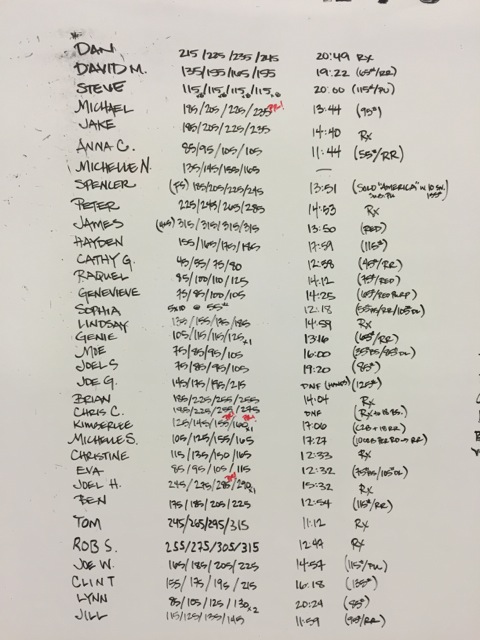 DAN 215/225/235/245 20:49 RX
DAVID M. 135/155/165/155 19:22 (65#/RR)
STEVE 115/115/115/115 20:00 (115#/PU)
MICHAEL 185/205/225/235 PR! 13:44 (95#)
JAKE 185/205/225/235 14:40 RX
ANNA C. 85/95/105/105 11:44 (55#/RR)
MICHELLE N. 135/145/155/165 —
SPENCER 185/205/225/245 13:51 (SOLO "AMERICA" W/
PETER 225/245/265/285 14:53 RX
JAMES 315/315/315/315 13:50 (RED)
HAYDEN 155/165/175/185 17:59 (115#)
CATHY G. 45/55/75/80 12:58 (45#/RR)
RAQUEL 85/100/110/125 14:12 (75#/RED)
GENEVIEVE 75/85/100/105 14:25
SOPHIA 5x10 @ 55# 12:18
LINDSAY 135/155/175/185 14:59 RX
GENIE 105/115/115/125 x1 13:16 (65#/RR)
MOE 75/85/95/105 16:00
JOEL S 75/85/95/105 19:20 (85#)
JOE G. 145/175/195/215 DNF (125#)
BRIAN 185/225/255/255 14:04 RX
CHRIS C. 195/225/255/275 DNF
KIMBERLEE 125/145/155/160 17:06
MICHELLE S. 105/125/155/165 17:27
CHRISTINE 115/135/150/165 12:33 RX
EVA 85/95/105/115 12:32
JOEL H. 245/275/285/290 x1 15:32 RX
BEN 175/185/205/225 12:54 (115#/RR)
TOM 245/265/295/315 11:12 RX
ROB S. 255/275/305/315 12:49 RX
JOE W. 165/185/205/225 14:57 (115#/PU)
CLINT 155/175/195/215 16:18 (135#)
LYNN 85/105/125/130 x2 20:24 (85#)
JILL 115/125/135/145 11:59 (95#/RR)